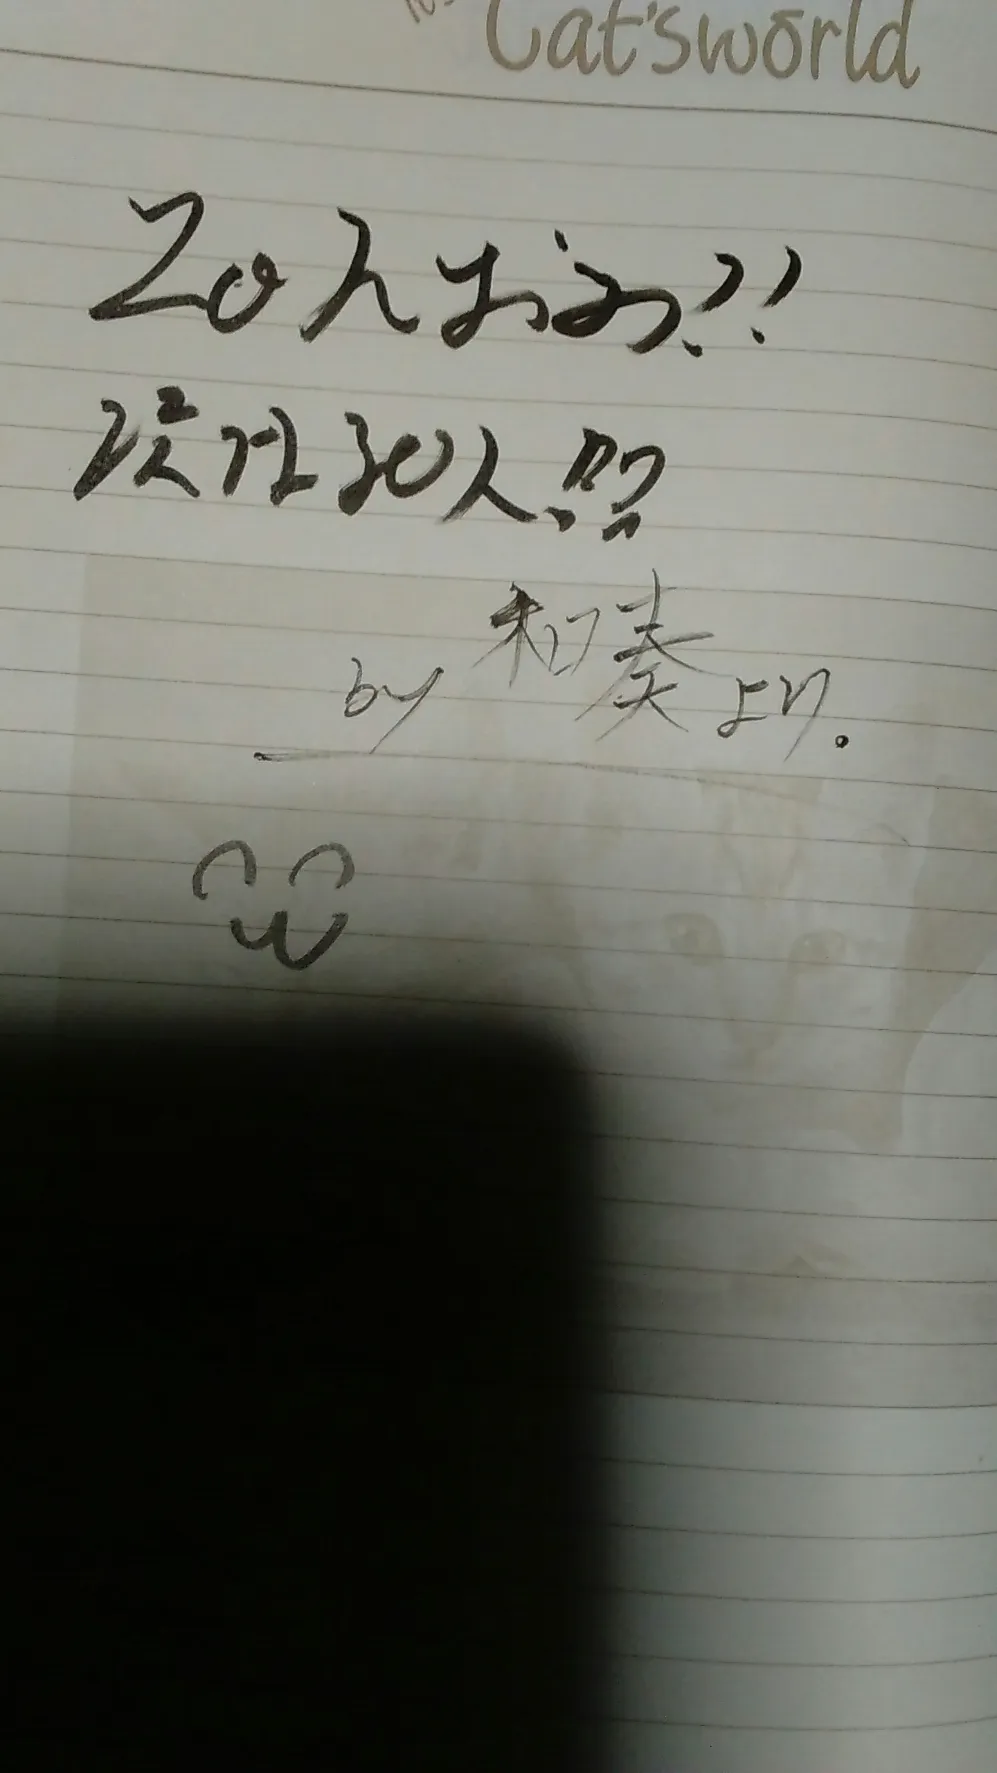 Cat'sworld
20人おめ??
現在30人!!??
by 和奏より。